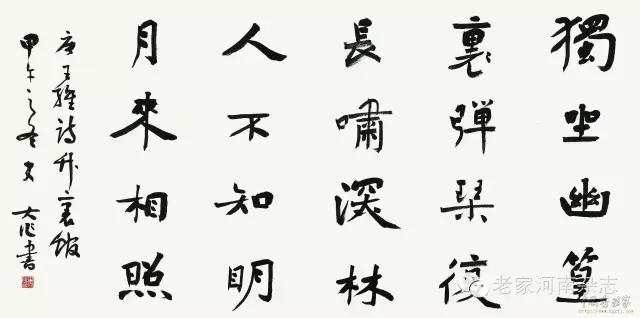 獨坐幽篁
裏彈琴復
長嘯深林
人不知明
月來相照
唐王維詩竹裏館
甲午之冬 書
老家河南杂志